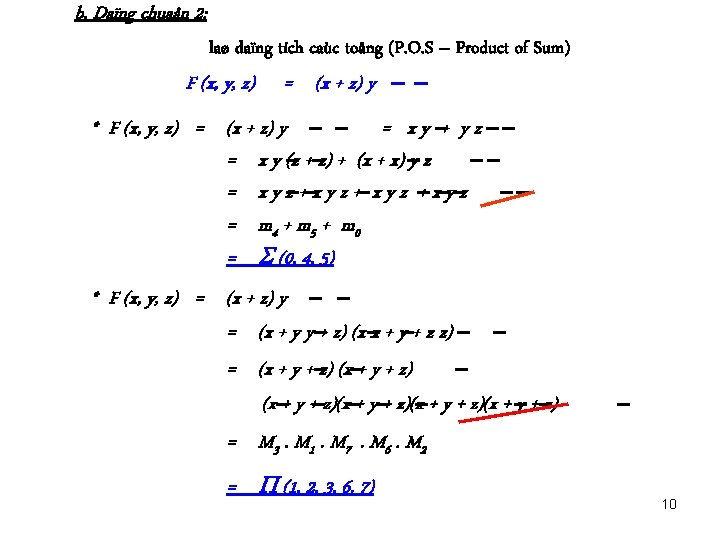 b. Daïng chuaån 2:
laø daïng tích caùc toång (P.O.S – Product of Sum)
F (x, y, z) = (x + z) y — —
* F (x, y, z) = (x + z) y — — = x y + y z — —
= x y (z + z) + (x + x) y z — —
= x y z + x y z + x y z + x y z — —
= m4 + m5 + m0
= Σ (0, 4, 5)
* F (x, y, z) = (x + z) y — —
= (x + y y + z) (x x + y + z z) — —
= (x + y + z) (x + y + z) —
(x + y + z)(x + y + z)(x + y + z)(x + y + z) —
= M3 . M1 . M7 . M6 . M2
= Π (1, 2, 3, 6, 7)
10